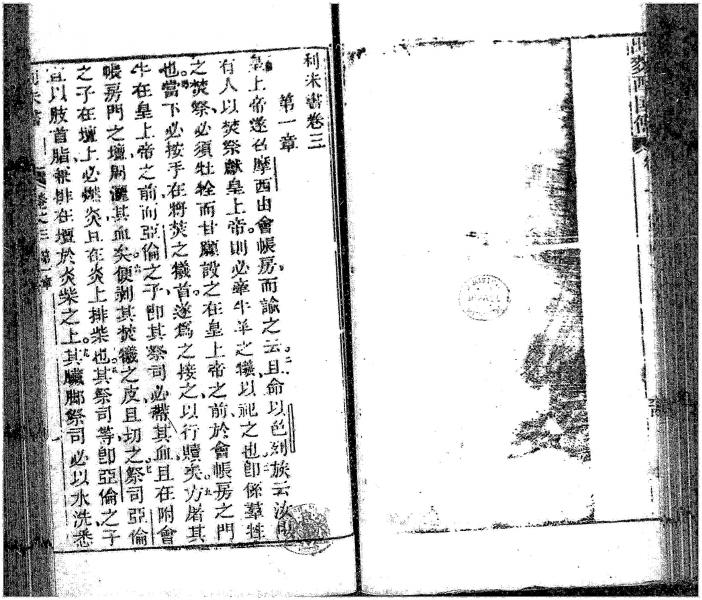 利未書卷三
第一章
皇上帝遂召摩西由會帳房而諭之云且命以色列族云汝
有人以焚祭獻皇上帝則必牽牛羊之犧以祀之也卽係羣牲
之焚祭必須牡牷而甘願設之在皇上帝之前於會帳房之門
也當下必按手在將焚之犧首遂爲之接之以行贖矣方屠其
牛在皇上帝之前而亞倫之子卽其祭司必帶其血且在附會
帳房門之壇周灑其血矣便剝其焚犧之皮且切之祭司亞倫
之子在壇上必燃炎且在炎上排柴也其祭司等卽亞倫之子
以肢首脂排在壇於炎柴之上其臟腳祭司必以水洗悉